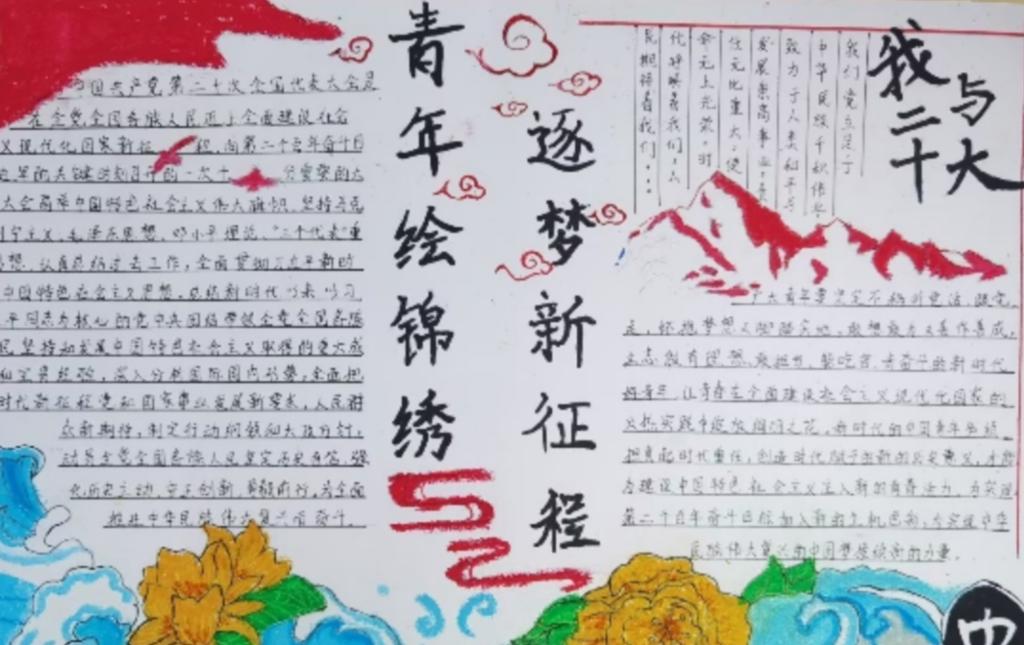 中国共产党第二十次全国代表大会是
在全党全国各族人民迈上全面建设社会
义现代化国家新征程、向第二个百年奋斗目
的关键时刻召开的一次十分重要的大
大会高举中国特色社会主义伟大旗帜、坚持马克
列宁主义、毛泽东思想、邓小平理论、"三个代表"重
思想、认真总结过去工作，全面贯彻习近平新时
中国特色社会主义思想，总结新时代以来以习
平同志为核心的党中央团结带领全党全国各族
民坚持和发展中国特色社会主义取得的重大成
和宝贵经验，深入分析国际国内形势，全面把
时代新征程党和国家事业发展新要求，人民群
众新期待，制定行动纲领和大政方针，
动员全党全国各族人民坚定历史自信、
历史主动、守正创新、勇毅前行，为全面
推进中华民族伟大复兴而奋斗。
青年绘锦绣
逐梦新征程
我与
二十大
我们党立志于
中华民族千秋伟业
致力于人类和平与
发展崇高事业，
任无比重大，使
命无上光荣。时
代呼唤着我们，人
民期待着我们...
广大青年要坚定不移听党话、跟党
走，怀抱梦想又脚踏实地，敢想敢为又善作善成，
立志做有理想、敢担当、能吃苦、肯奋斗的新时代
好青年，让青春在全面建设社会主义现代化国家的
火热实践中绽放绚丽之花。新时代的中国青年
担负起时代重任，
为建设中国特色社会主义注入新的青春活力，为实现
第二个百年奋斗目标加入新的生机色彩，为实现中华
民族伟大复兴的中国梦接续新的力量。
中